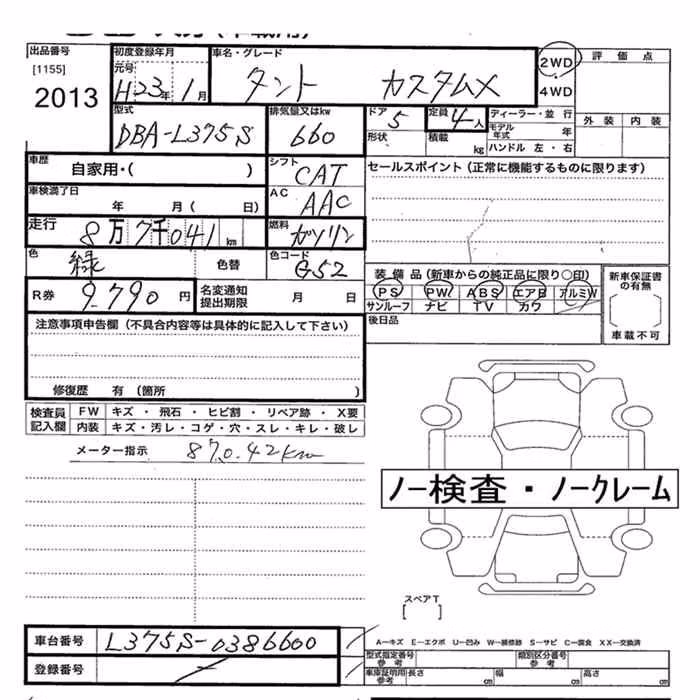 出品番号 初度登録年月 車名・グレード 2WD 評価点
[1155] 元号
2013 H23年 1月 タント カスタムX 4WD
型式 排気量又はkw ドア 定員 ディーラー・並行
DBA-L375S 660 5 4人 モデル年式 年 外装 内装
形状 積載 kg ハンドル 左・右
車歴 自家用・( ) シフト CAT セールスポイント (正常に機能するものに限ります)
車検満了日 年 月 ( 日) AC AAC
走行 8万7千041km 燃料 ガソリン
色 緑 色替 色コード G52 装備品 (新車からの純正品に限り○印) 新車保証書の有無
R券 9.790円 名変通知提出期限 月 日 PS PW ABS エアB アルミW
サンルーフ ナビ TV カワ
注意事項申告欄 (不具合内容等は具体的に記入して下さい) 後日品 車載不可
修復歴 有 (箇所 )
検査員記入欄 FW キズ・飛石・ヒビ割・リペア跡・X要
内装 キズ・汚レ・コゲ・穴・スレ・キレ・破レ
メーター指示 87.042km
ノー検査・ノークレーム
スペアT
[ ]
車台番号 L375S-0386600 A-キズ E-エクボ U-凹み W-補修跡 S-サビ C-腐食 XX-交換済
登録番号 型式指定番号 参考 類別区分番号 参考
車庫証明用参考 長さ cm 幅 cm 高さ cm